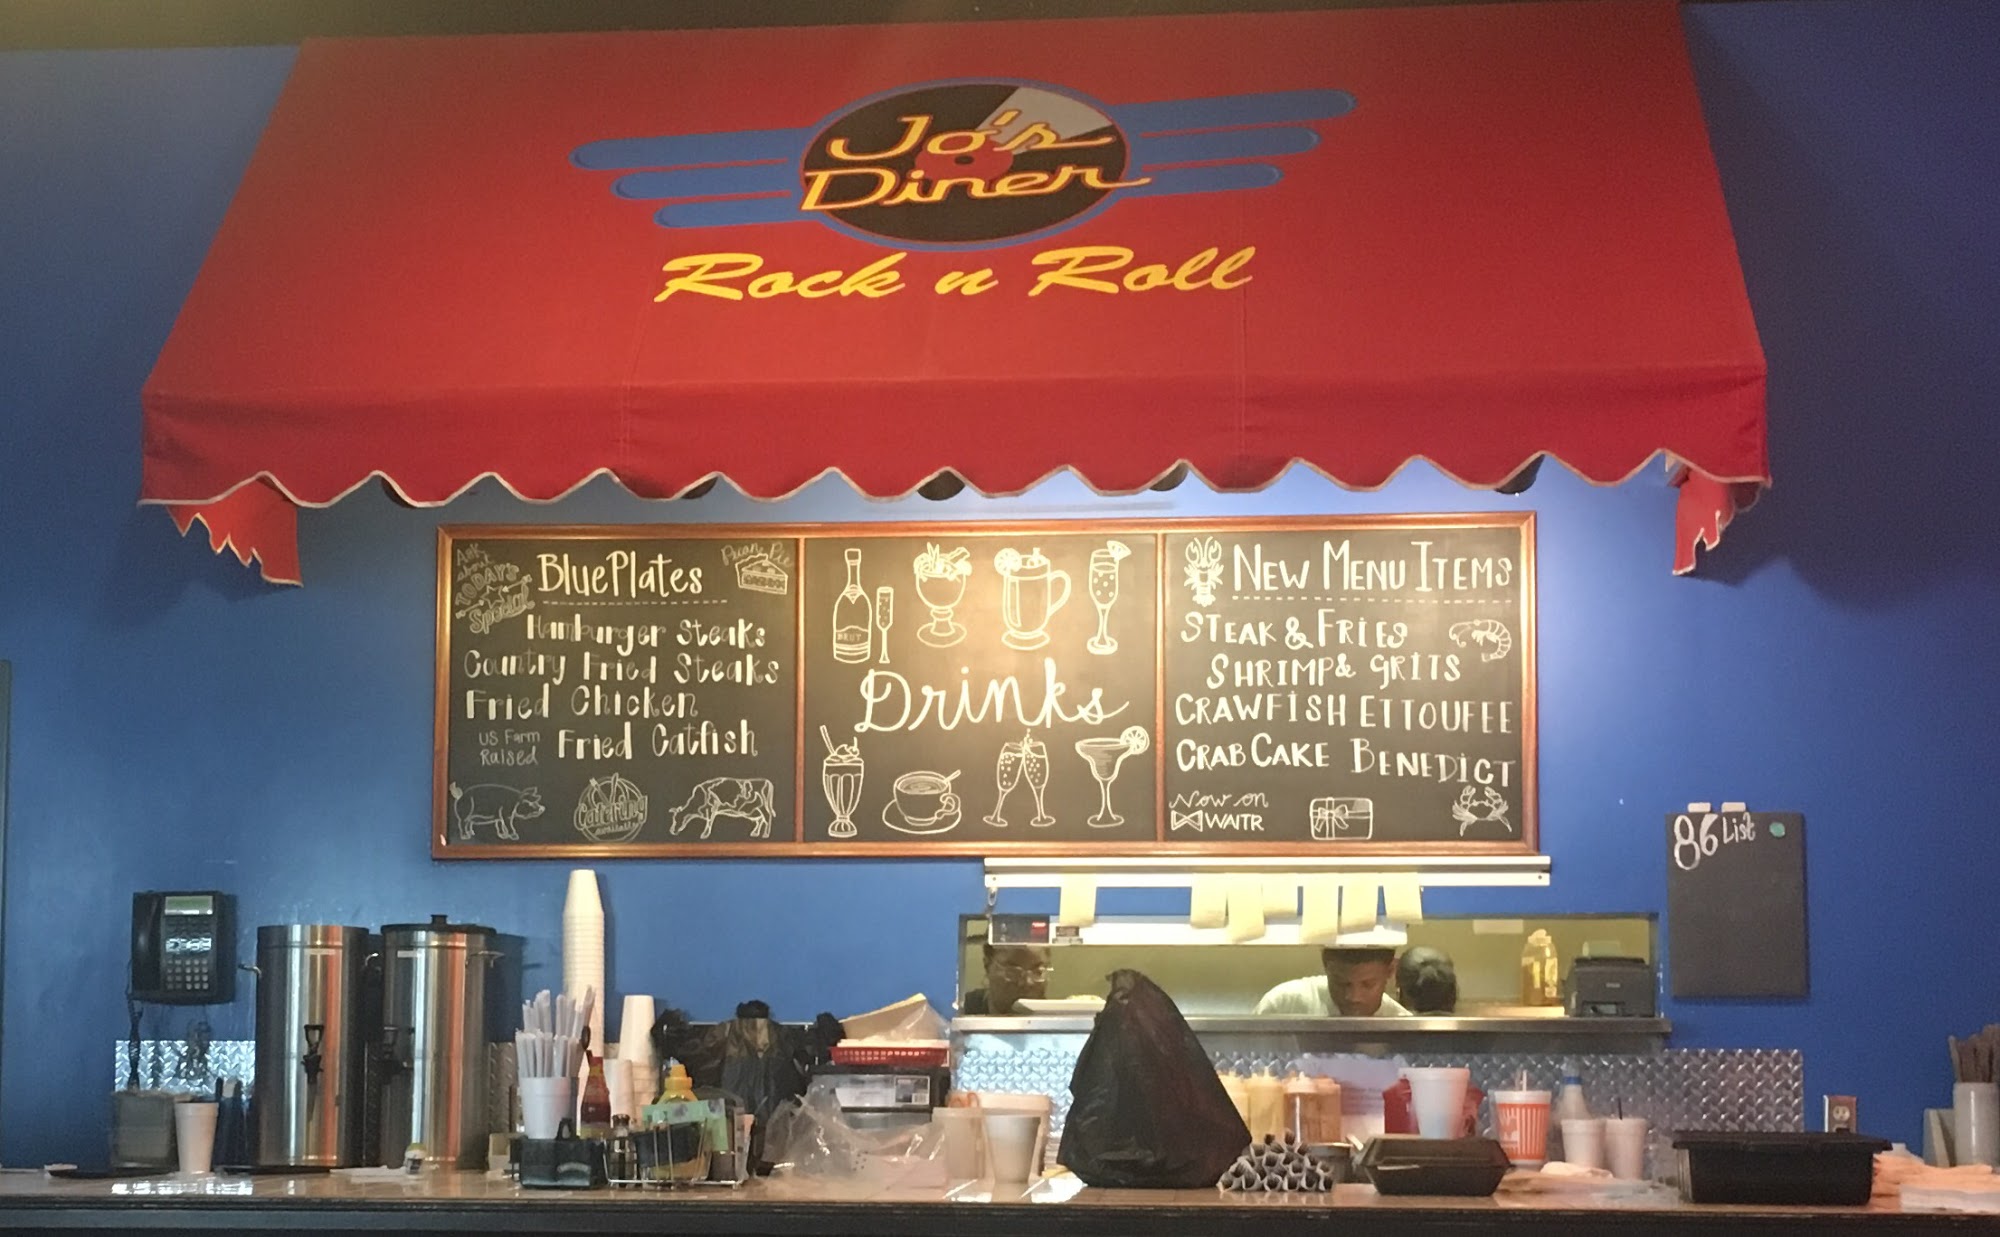 Jo's
Diner
Rock n Roll
Ask
about
TODAY'S
Special
BluePlates
Pecan Pie
Hamburger Steaks
Country Fried Steaks
Fried Chicken
US Farm
Raised
Fried Catfish
Catering
available
BRUT
Drinks
NEW MENU ITEMS
STEAK & FRIES
SHRIMP & GRITS
CRAWFISH ETTOUFEE
CRAB CAKE BENEDICT
Now on
WAITR
86 List